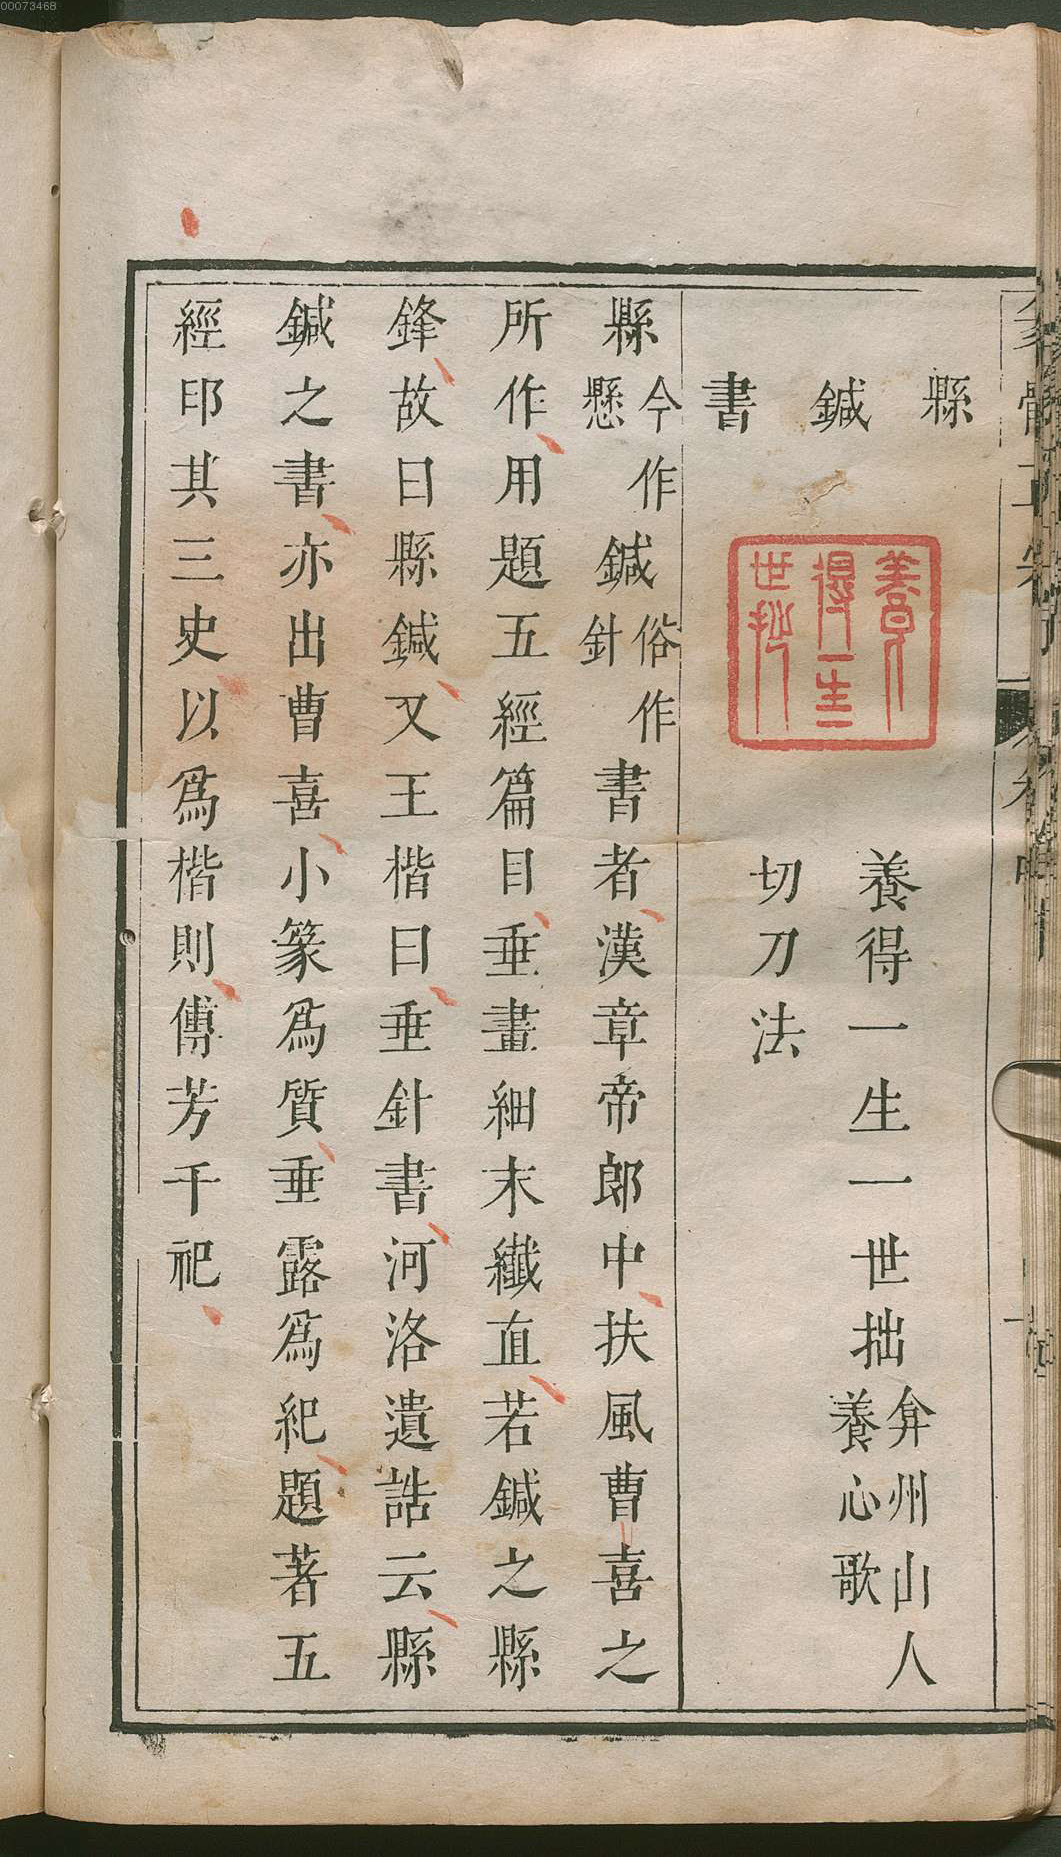 00073468
縣
鍼
書
養得一生世拙
養得一生一世拙
弇州山人
養心歌
切刀法
縣今作懸鍼俗作針書者漢章帝郎中扶風曹喜之
所作用題五經篇目垂畫細末纖直若鍼之縣
鋒故曰縣鍼又王楷曰垂針書河洛遺誥云縣
鍼之書亦出曹喜小篆爲質垂露爲紀題著五
經印其三史以爲楷則傳芳千祀